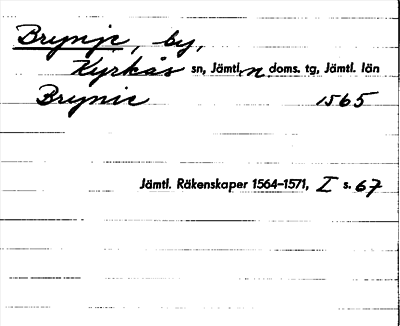 Brynje, by,
Kyrkås sn, Jämtl. n doms. tg, Jämtl. län
Brynie 1565
Jämtl. Räkenskaper 1564–1571, I s. 67